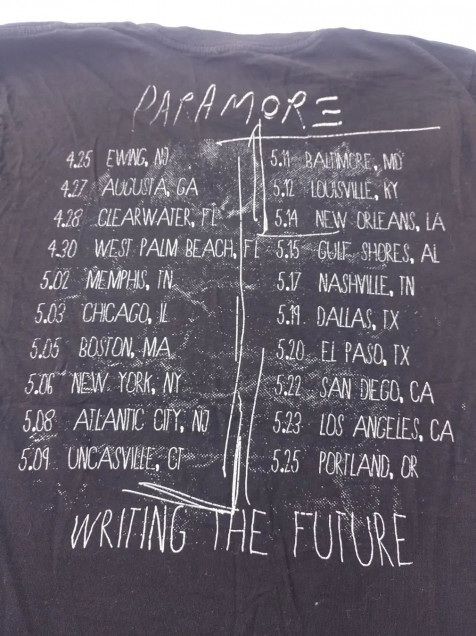 PARAMORE
4.25 EWING, NJ
4.27 AUGUSTA, GA
4.28 CLEARWATER, FL
4.30 WEST PALM BEACH, FL
5.02 MEMPHIS, TN
5.03 CHICAGO, IL
5.05 BOSTON, MA
5.06 NEW YORK, NY
5.08 ATLANTIC CITY, NJ
5.09 UNCASVILLE, CT
5.11 BALTIMORE, MD
5.12 LOUISVILLE, KY
5.14 NEW ORLEANS, LA
5.15 GULF SHORES, AL
5.17 NASHVILLE, TN
5.19 DALLAS, TX
5.20 EL PASO, TX
5.22 SAN DIEGO, CA
5.23 LOS ANGELES, CA
5.25 PORTLAND, OR
WRITING THE FUTURE